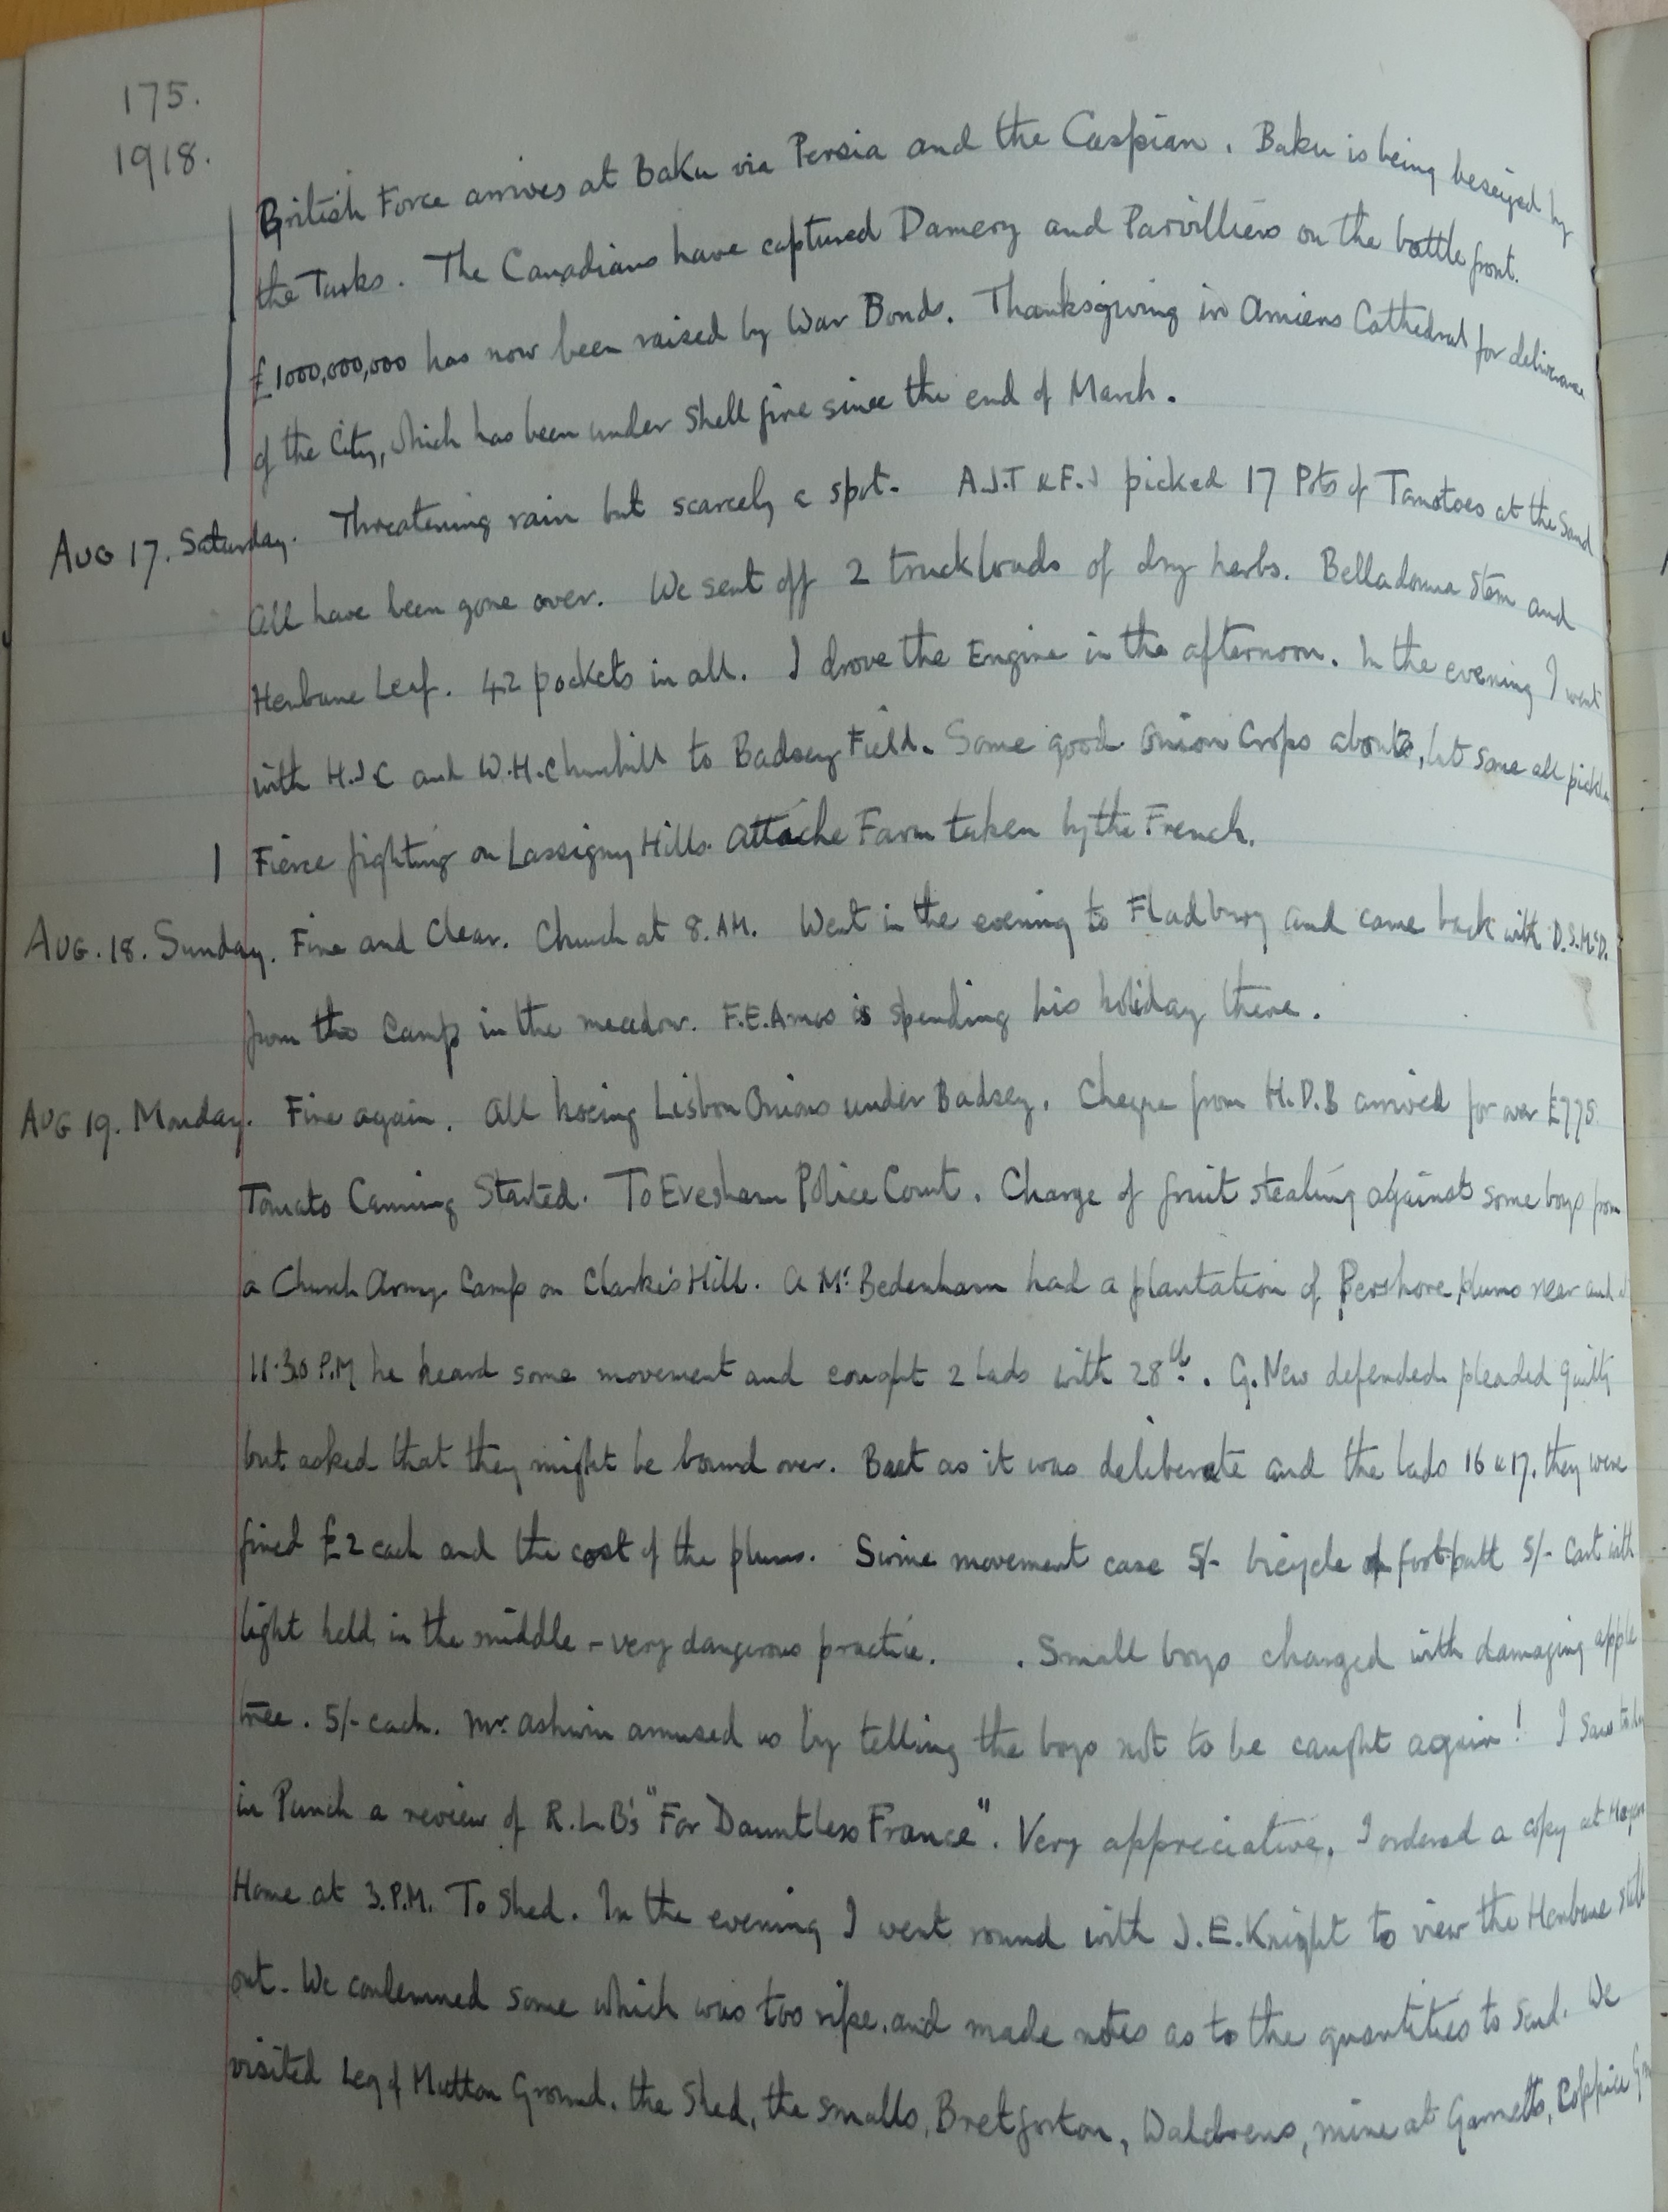 175.
1918.
British Force arrives at Baku via Persia and the Caspian. Baku is being beseiged by
the Turks. The Canadians have captured Damery and Parvilliers on the battle front.
£1000,000,000 has now been raised by War Bonds. Thanksgiving in Amiens Cathedral for deliverance
of the City, which has been under Shell fire since the end of March.
AUG 17. Saturday. Threatening rain but scarcely a spot. A.J.T & F.J picked 17 Pots of Tomatoes at the Sand
All have been gone over. We sent off 2 truckloads of dry herbs. Belladonna Stem and
Henbane Leaf. 42 pockets in all. I drove the Engine in the afternoon. In the evening I went
with H.J.C and W.H. Churchill to Badsey Field. Some good Onion Crops about, but some all
Fierce fighting on Lassigny Hills. Attache Farm taken by the French.
AUG. 18. Sunday. Fine and Clear. Church at 8. AM. Went in the evening to Fladbury and came back with D.S.McD.
from the Camp in the meadow. F.E. Amos is spending his holiday there.
AUG 19. Monday. Fine again. All hoeing Lisbon Onions under Badsey. Cheque from H.D.B arrived for over £775.
Tomato Canning Started. To Evesham Police Court. Charge of fruit stealing against some boys from
a Church Army Camp on Clarke's Hill. A Mr Bedenham had a plantation of Pershore plums near and
11.30 P.M he heard some movement and caught 2 lads with 28 lb. G. New defended pleaded guilty
but asked that they might be bound over. But as it was deliberate and the lads 16 & 17, they were
fined £2 each and the cost of the plums. Swine movement case 5/- bicycle on footpath 5/- Cart with
light held in the middle - very dangerous practice. . Small boys charged with damaging apple
tree. 5/- each. Mr. Ashwin amused us by telling the boys not to be caught again! I saw
in Punch a review of R.L.B's "For Dauntless France". Very appreciative. I ordered a copy at
Home at 3. P.M. To Shed. In the evening I went round with J.E. Knight to view the Henbane still
out. We condemned some which was too ripe, and made notes as to the quantities to Send. We
visited Leg of Mutton Ground, the Shed, the smalls, Bretforton, Waldrons, mine at Garnetts, Coppice